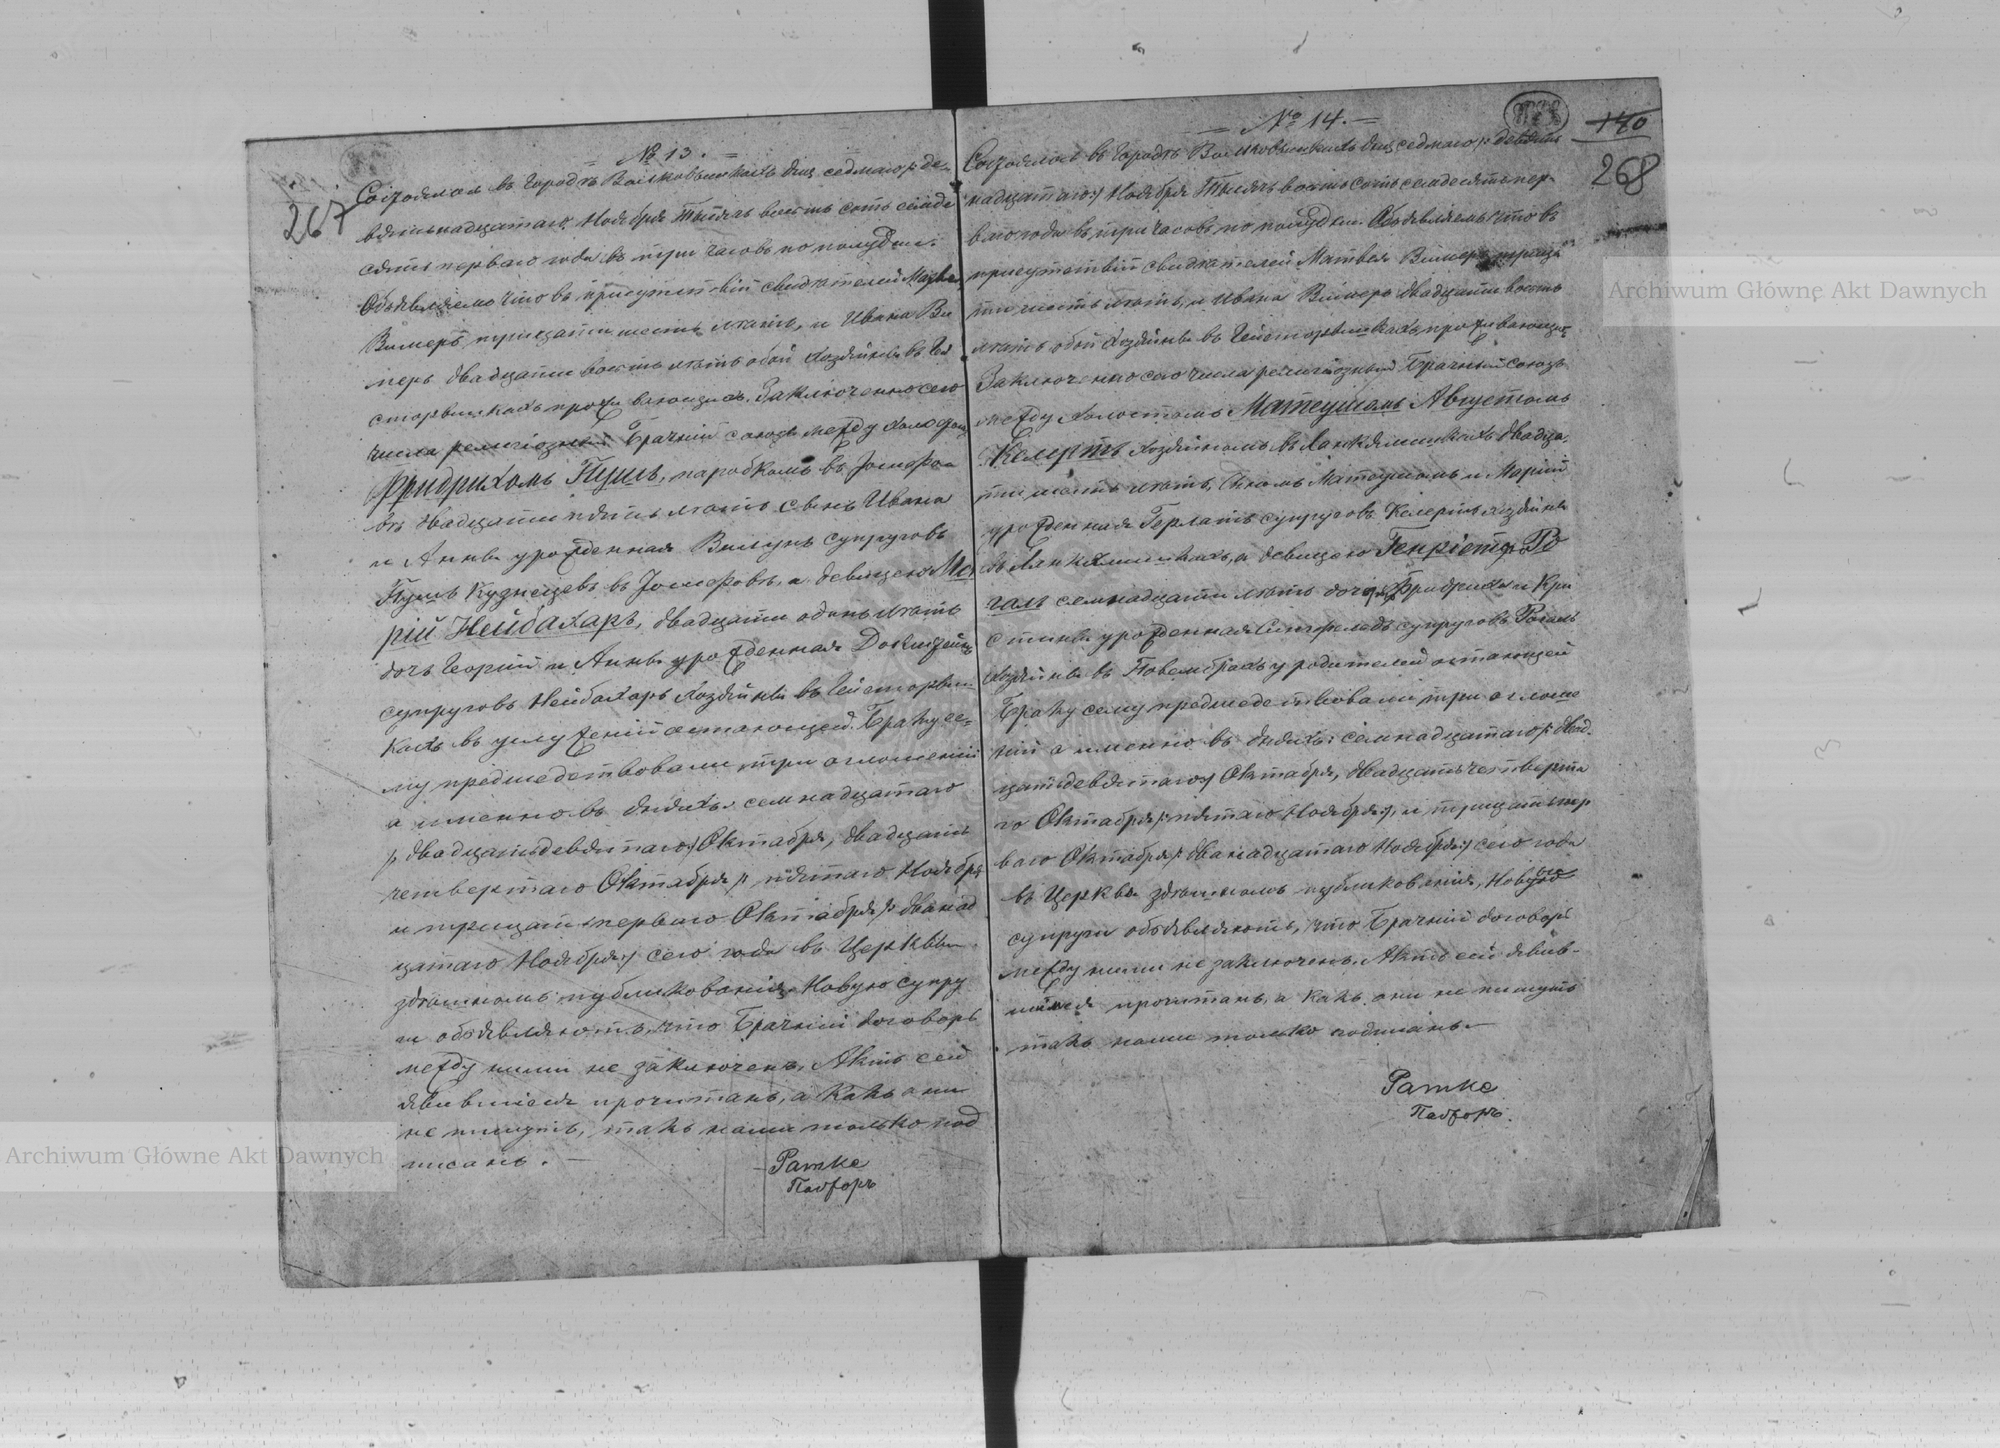 № 13.
267
Состоялся въ городѣ Волковышкахъ дня седмаго /: де-
вятьнадцатаго Ноября Тысячъ восемь сотъ семьде
сятъ перваго года въ три часовъ по полудни.
Объявляемъ что въ присутствіи свидѣтелей Матвея
Вимеръ трицати шесть лѣтъ, и Ивана Ви
меръ двадцати восемь лѣтъ обой хозяйнъ въ Гей
сторышкахъ проживающихъ. Заключенно сего
числа религіозный Брачній союзъ между холостымъ
Фридрихомъ Пушъ, паробкомъ въ
въ двадцати пять лѣтъ сынъ Ивана
и Анны урожденная супруговъ
Пушъ Кузнецевъ въ а девицею Ма
рій Нейбахаръ, двадцати одинъ лѣтъ
дочъ Георгій и Анны урожденная
супруговъ Нейбахаръ хозяйнъ въ Гейсторыш
кахъ въ услуженіи остающей. Браку се-
му предшедствовали три оглошеній
а именно въ дняхъ: семнадцатаго
/: двадцатьдевятаго :/ Октября, двадцать
четвертаго Октября /: пятаго Ноября
и трицать перваго Октября /: двенад
цатаго Ноября :/ сего года въ Церквы
здѣшномъ публикованія. Новую супру
ги объявляютъ, что Брачній договоръ
между ними не заключенъ. Актъ сей
явившіеся прочитанъ, а какъ они
не пишутъ, такъ нами только под
писанъ. —
Ратке
Пасторъ
№ 14.
140
268
Состоялся въ городѣ Волковышкахъ дня седмаго /: девять
надцатаго :/ Ноября Тысячъ восемь сотъ семьдесятъ пер-
ваго года въ три часовъ по полудни. Объявляемъ что въ
присутствіи свидѣтелей Матвея Вимеръ трица
ти шесть лѣтъ, и Ивана Вимеръ двадцати восемь
лѣтъ обой хозяйнъ въ Гейсторышкахъ проживающихъ
Заключенно сего числа религіозный Брачный союзъ
между холостымъ Матеушомъ Августомъ
Келертъ хозяйномъ въ двадца
ти шесть лѣтъ, сыномъ Матеушомъ и Маріи
урожденная Герлатъ супруговъ Келертъ хозяйнъ
въ а девицею Генріета Ро
галь семнадцати лѣтъ дочъ Фридриха и Кри
стины урожденная супруговъ Рогаль
хозяйнъ въ у родителей остающей
Браку сему предшедствовали три оглоше
ній а именно въ дняхъ: семнадцатаго /: двад
цатьдевятаго :/ Октября, двадцать четверта
го Октября /: пятаго Ноября :/, и трицать пер
ваго Октября /: двенадцатаго Ноября :/ сего года
въ Церквы здѣшномъ публикованія, Новую
супруги объявляютъ, что Брачній договоръ
между ними не заключенъ. Актъ сей явив-
шіися прочитанъ, а какъ они не пишутъ
такъ нами только подписанъ. —
Ратке
Пасторъ.
Archiwum Główne Akt Dawnych
Archiwum Główne Akt Dawnych